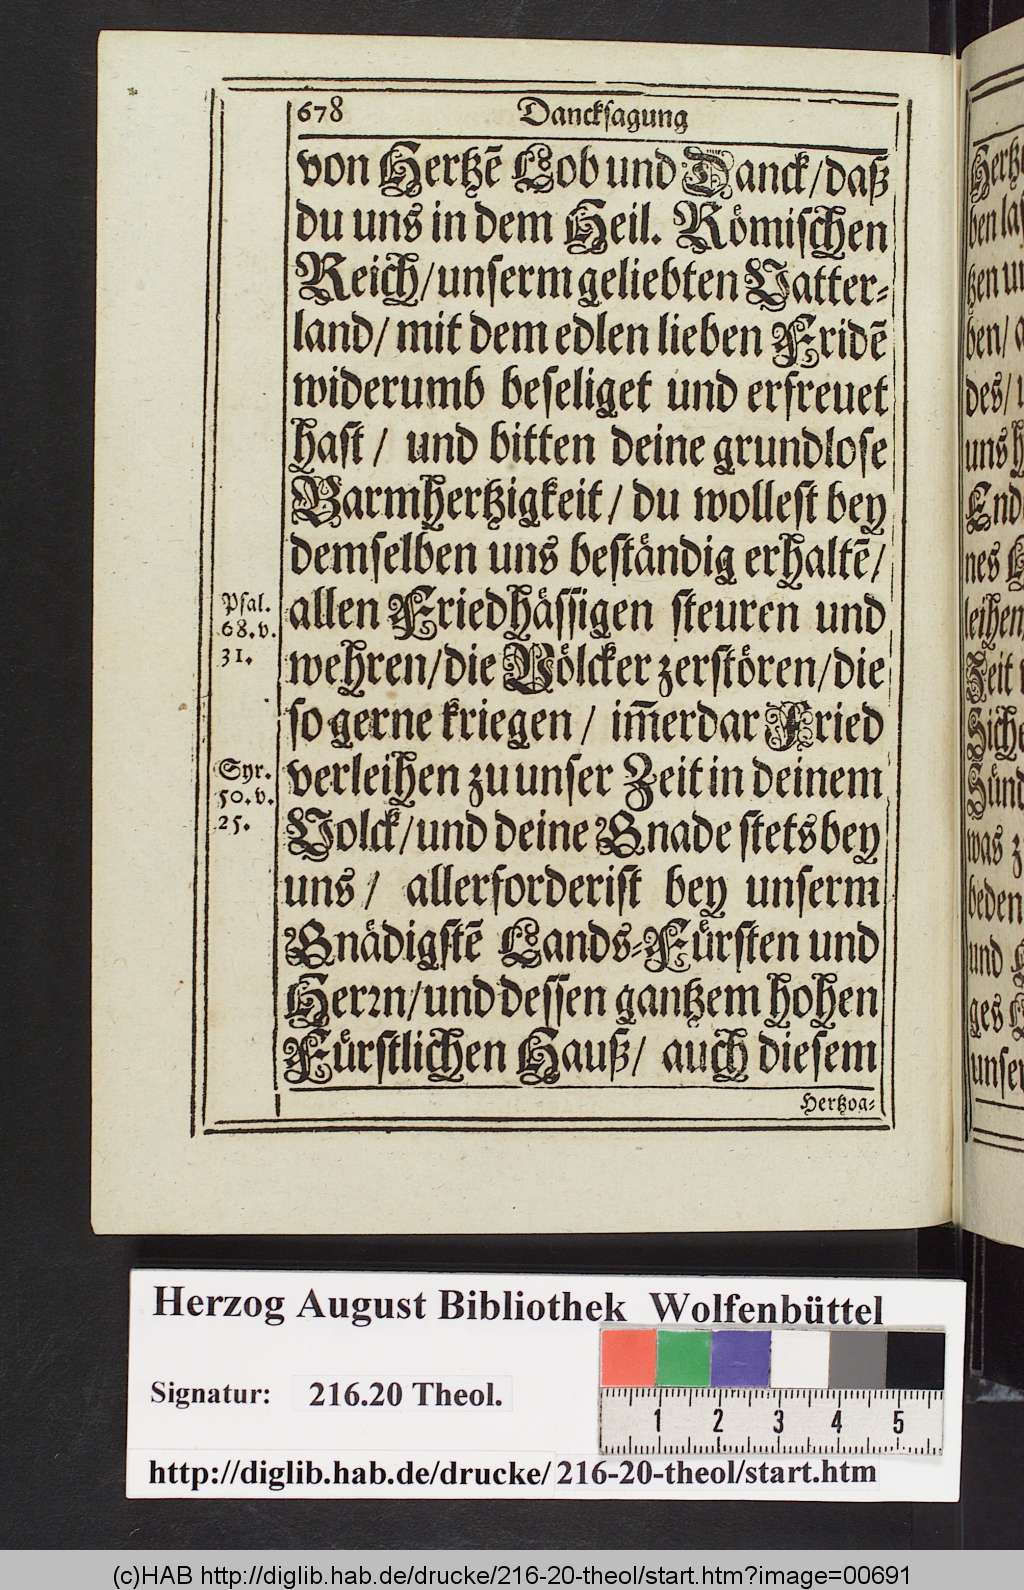 678 Dancksagung
von Hertzē Lob und Danck/daß
du uns in dem Heil. Römischen
Reich/unserm geliebten Vatter-
land/ mit dem edlen lieben Fridē
widerumb beseliget und erfreuet
hast/ und bitten deine grundlose
Barmhertzigkeit/ du wollest bey
demselben uns beständig erhaltē/
allen Friedhässigen steuren und
wehren/die Völcker zerstören/die
so gerne kriegen/ im̄erdar Fried
verleihen zu unser Zeit in deinem
Volck/und deine Gnade stets bey
uns/ allerforderist bey unserm
Gnädigstē Lands-Fürsten und
Herrn/und dessen gantzem hohen
Fürstlichen Hauß/ auch diesem
Hertzog-
Psal.
68.v.
31.
Syr.
50.v.
25.
Hertze
ben las
tzen un
ben/ a
des/ u
uns h
End
nes G
leihen
Zeit
Siche
Sünd
was z
beden
und
ges
unser
Herzog August Bibliothek Wolfenbüttel
Signatur: 216.20 Theol.
1 2 3 4 5
http://diglib.hab.de/drucke/216-20-theol/start.htm
(c)HAB http://diglib.hab.de/drucke/216-20-theol/start.htm?image=00691